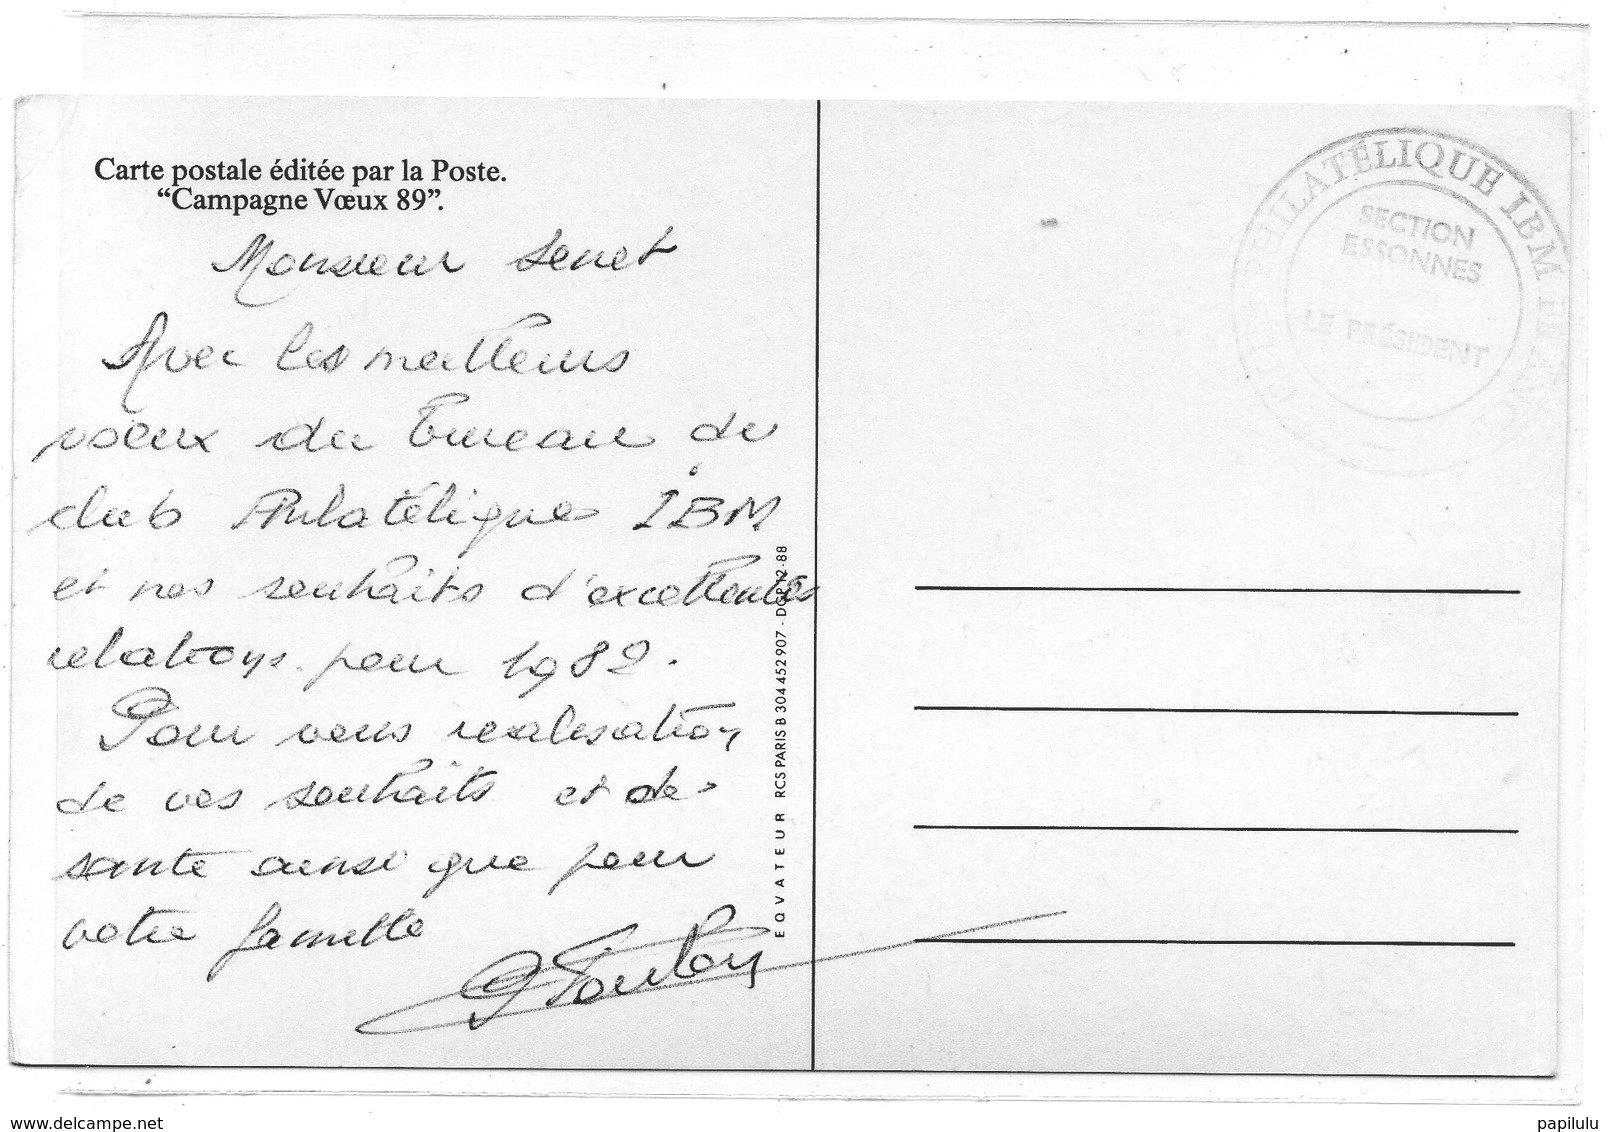 Carte postale éditée par la Poste.
“Campagne Vœux 89”.
Monsieur Senet
Avec les meilleurs
voeux du bureau du
club Philatélique IBM
et nos souhaits d'excellentes
relations pour 1989.
Pour vous realisation
de vos souhaits et de
santé ainsi que pour
votre famille
EQVATEUR RCS PARIS B 304 452 907 - DGP 12-88
PHILATÉLIQUE IBM FRANCE
SECTION
ESSONNES
LE PRÉSIDENT
delcampe.net
papilulu